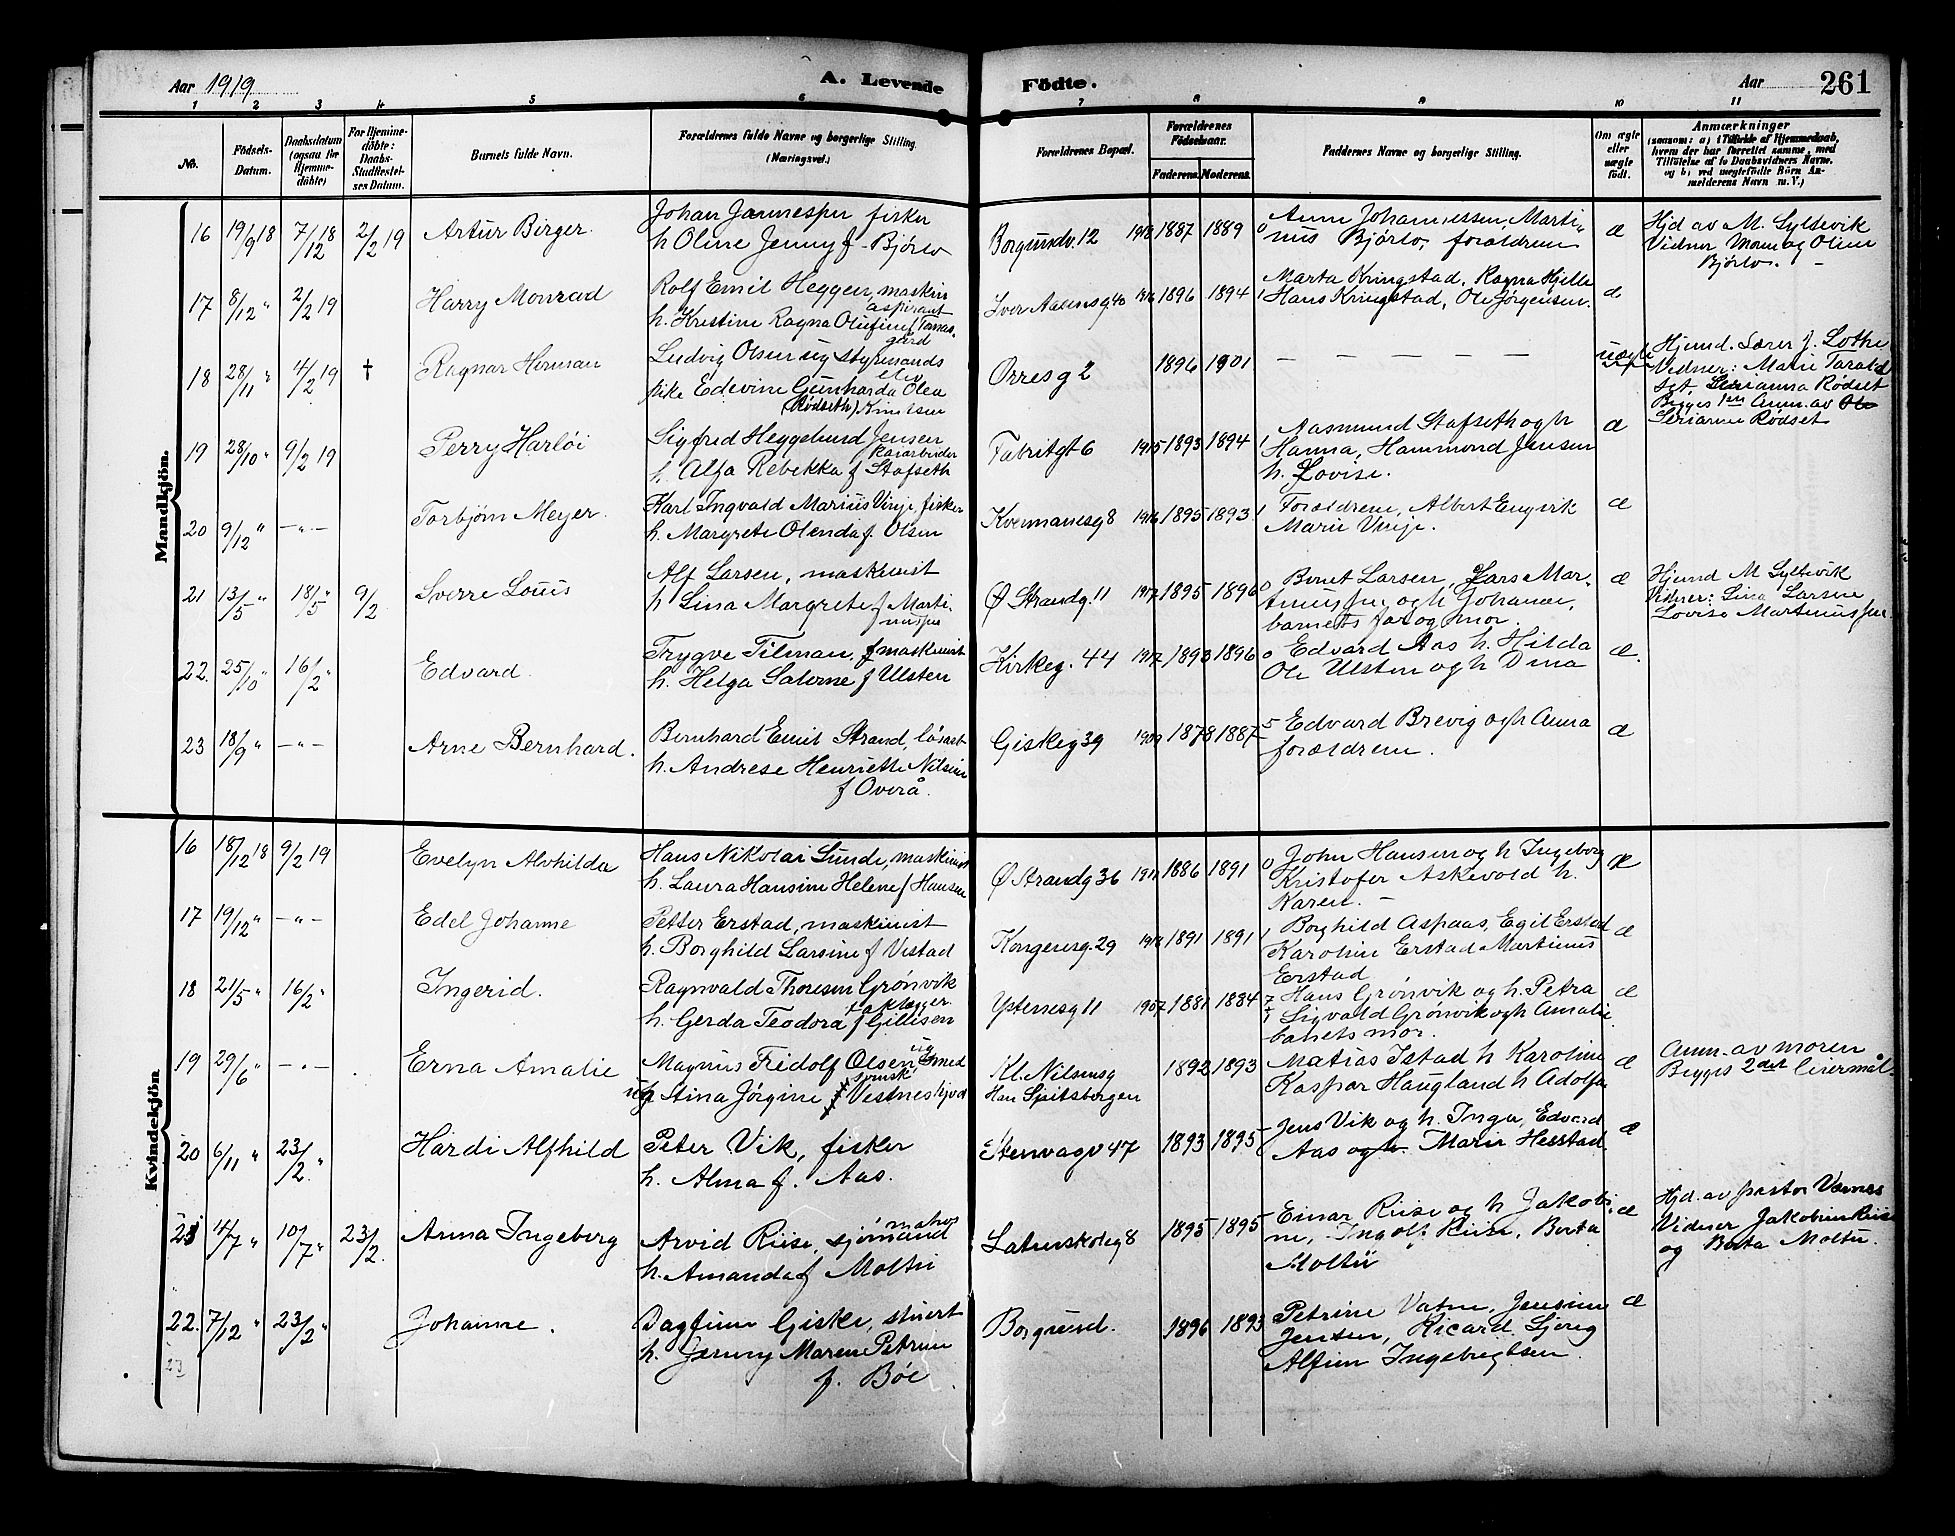 Aar 1919
A. Levende Födte.
Aar 261
1 2 3 4 5 6 7 8 9 10 11
No.
Födsels-
Datum.
Daabsdatum
(ogsaa for
Hjemme-
döbte)
For Hjemme-
döbte:
Daabs-
Stadfæstel-
ses Datum.
Barnets fulde Navn.
Forældrenes fulde Navne og borgerlige Stilling
(Næringsvei.)
Forældrenes Bopæl.
Forældrenes
Födselsaar.
Faderens. Moderens.
Faddernes Navne og borgerlige Stilling.
Om ægte
eller
uægte
födt.
Anmærkninger
(saasom: a) i Tilfælde af Hjemmedaab,
hvem der har forrettet samme, med
Tilföielse af to Daabsvidners Navne.
og b) ved uægtefödte Börn An-
melderens Navn m. V.)
Mandkjön.
16 19/9 18 7/12 18 2/2 19 Artur Birger.
Johan Jannesper fisker
h Oline Jenny f. Bjørlo
Borgundv. 12 1918 1887 1889 0
Anne Johannessen, Marti-
nus Bjørlo, forældrene
æ
Hjd av M. Syltevik
Vidner Moren og Oline
Bjørlo. -
17 8/12 " 2/2 19 Harry Monrad
Rolf Emil Heggen, maskin
aspirant
h. Kristine Ragna Olufine f Tomas-
gård
Iver Aasensg. 40 1916 1896 1894 1
Marta Kringstad, Ragna Hjelle
Hans Kringstad, Ole Jørgensen.
æ
18 28/11 " 4/2 19 † Ragnar Herman
Ludvig Olsen ug styrmands
elev
pike Edevine Gunharda Olea
(Rødseth) Knutsen
Orresg 2 1896 1901
- - - - - -
uægte
Hjemd. Lærer J. Lothe
Vidner: Marie Tarald
set Serianna Rødset
Begges 1ste Anm. av Ole
Serianna Rødset
19 28/10 " 9/2 19 Perry Harløi
Sigfred Heggelund Jensen
kaiarbeider
h. Alfa Rebekka f Stafseth
Fabrikgt 6 1915 1893 1894 1
Aasmund Stafseth og h
Hanna, Hammond Jensen
h. Lovise.
æ
20 9/12 " -"- Torbjørn Meyer.
Karl Ingvald Marius Vinje, fisker
h. Margrete Olenda f. Olsen
Kvennanesg 8 1916 1895 1893 1
Forældrene, Albert Engvik
Marie Vinje.
æ
21 13/5 " 18/5 " 9/2 Sverre Louis
Alf Larsen, maskinist
h Lina Margrete f Marti-
nussen
Ø Strandg. 11 1917 1895 1896 0
Bernt Larsen, Lars Mar-
tinussen og h Johanne,
barnets far og mor.
æ
Hjemd M Syltevik
Vidner: Lina Larsen
Lovise Martinussen.
22. 25/10 " 16/2 " Edvard.
Trygve Tilman, maskinist
h. Helga Salome f Ulsten
Kirkeg. 44 1917 1893 1896 0
Edvard Aas h. Hilda
Ole Ulsten og h Dina
æ.
23 18/9 " -"- Arne Bernhard.
Bernhard Emil Strand, løsarb
h. Andrese Henriette Nilsine
f Overå.
Giskeg 39 1909 1878 1887 5
Edvard Brevig og h Anna
forældrene.
æ
Kvindekjön
16 18/12 18 9/2 19 Evelyn Alvhilda
Hans Nikolai Sunde, maskinist
h. Laura Hansine Helene f Hansen
Ø Strandg 36 1911 1886 1891 0
John Hansen og h Ingeborg
Kristofer Askevold h.
Karen. -
æ
17 19/12 " -"- Edel Johanne
Petter Erstad, maskinist
h. Borghild Larsine f Vestad
Kongensg. 29 1918 1891 1891 1
Borghild Aspaas, Egil Erstad
Karoline Erstad Martinus
Erstad
æ
18 21/5 " 16/2 " Ingerid.
Ragnvald Thoresen Grønvik
taktegger
h. Gerda Teodora f Gillisen
Ystenesg 11 1907 1881 1884 7/1
Hans Grønvik og h. Petra
Sigvald Grønvik og h Amalie
barnets mor.
æ
19 29/6 " -"- Erna Amalie
Magnus Fridolf Olsen, ug smed
svensk
ug Stina Jørgine Vestnes hjvd
Kl. Nilsensg
Han Spitsbergen 1892 1893
Matias Istad h Karoline
Kaspar Haugland h Adolfa
æ
Anm. av moren
Begges 2det leiermål.
20 6/11 " 23/2. " Hardi Alfhild
Peter Vik, fisker
h. Alma f. Aas.
Stenvagv 47 1893 1895
Jens Vik og h. Inga, Edvard
Aas og h Marie Hesstad
æ
21 4/7 " 10/7 " 23/2. Anna Ingeborg
Arvid Riise, sjømand
h. Amanda f Moltu
Latinskoleg 8 1895 1895
Einar Riise og h Jakobi-
ne, Ingolf Riise, Berta
Moltu
æ
Hjd. av pastor Vernes
Vidner Jakobine Riise
og Berta Moltu.
22. 7/12 " 23/2 " Johanne.
Dagfinn Giske, stuert
h. Jenny Maren Petrine
f. Bøe
Borgund. 1896 1893
Petrine Vatne, Jensine
Jensen, Ricard Sjong
Alfine Ingebrigtsen.
æ
23